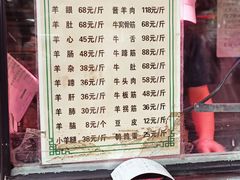 羊 眼 68元/斤 酱羊肉 118元/斤
羊 肚 68元/斤 牛窝骨筋 88元/斤
羊 心 45元/斤 牛 舌 98元/斤
羊 肠 48元/斤 牛蹄筋 88元/斤
羊 杂 38元/斤 牛 肚 68元/斤
羊 蹄 58元/斤 牛头肉 58元/斤
羊 肝 36元/斤 牛板筋 48元/斤
羊 肺 36元/斤 羊拐筋 36元/斤
羊 脑 8元/个 豆 皮 12元/斤
小羊腿 38元/斤 鹌鹑蛋 25元/斤